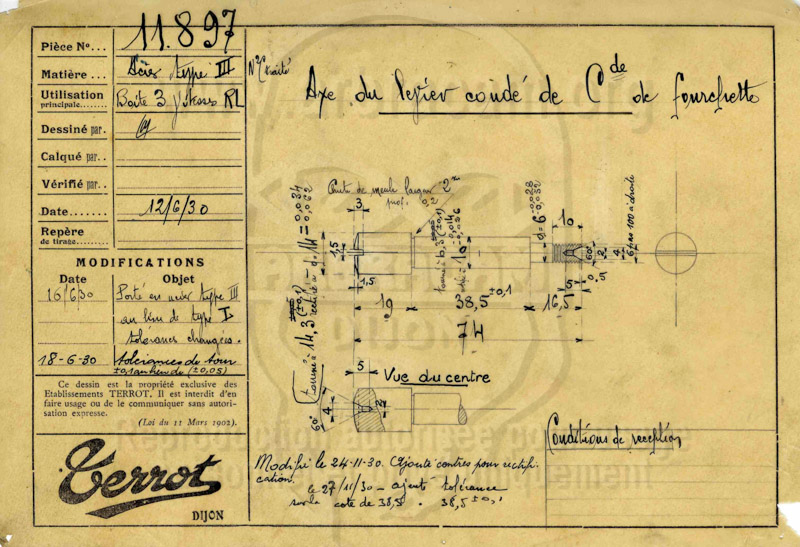 Pièce No... 11.897
Matière ... Acier type III
Utilisation principale........ Boite 3 Vitesses RL
Dessiné par.
Calqué par..
Vérifié par..
Date........ 12/6/30
Repère de tirage.......
MODIFICATIONS
Date Objet
16/6/30 Porté en acier type III
au lieu de type I
tolérances changées.
18-6-30 tolérances de tour
±0,1 au lieu de (±0,05)
Ce dessin est la propriété exclusive des
Etablissements TERROT. Il est interdit d'en
faire usage ou de le communiquer sans autori-
sation expresse.
(Loi du 11 Mars 1902.)
Terrot
DIJON
Axe du levier coudé de Cde de fourchette
Coup de meule largeur 2
prof. 0,2
3
1,5
1,5
tourné à 14,3 (±0,1) rectifié d=14 -0,034 -0,062
d=6 -0,028 -0,052
10
60°
2
4
6 pas 100 à droite
5
0,5
19 38,5 ±0,1 16,5
74
5
Vue du centre
60°
4
2
Modifié le 24-11-30. Ajouté centres pour rectifi-
cation.
le 27/11/30 - ajouté tolérance
sur la cote de 38,5 . 38,5 ±0,1
Conditions de réception